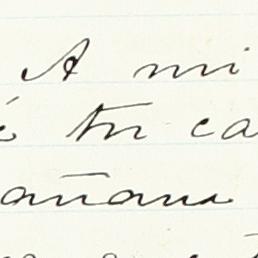 A mi
é tu ca
añana